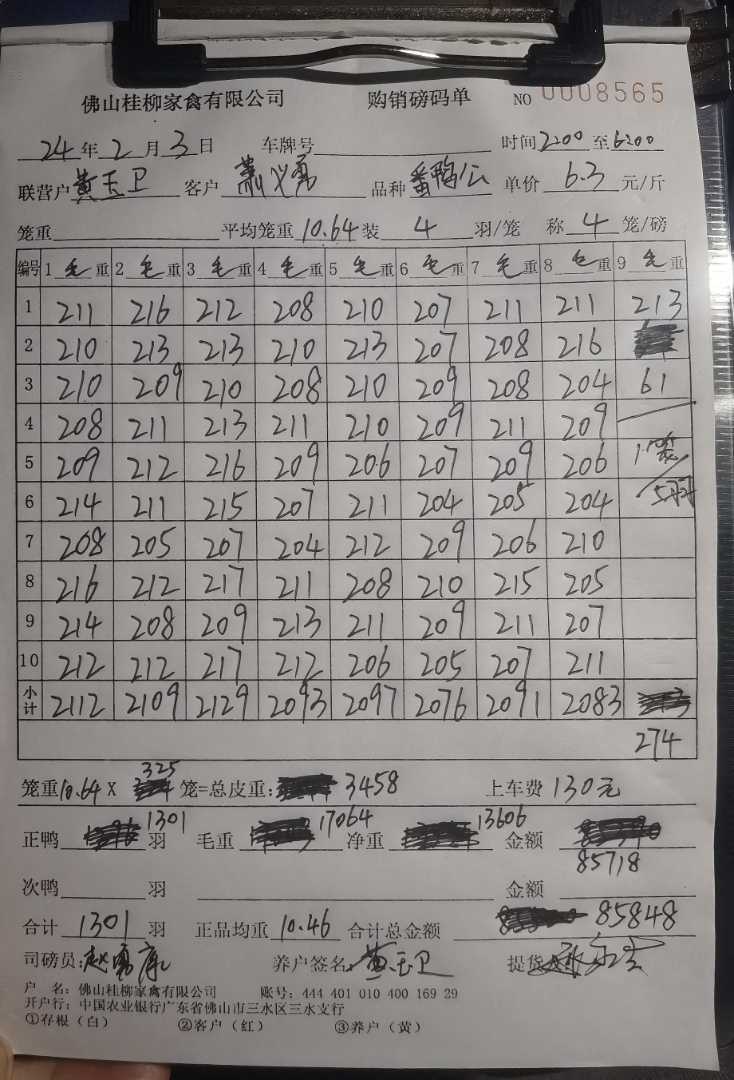 佛山桂柳家禽有限公司 购销磅码单 NO 0008565
24年2月3日 车牌号 时间2200至6200
联营户 黄玉卫 客户 萧义勇 品种 番鸭公 单价 6.3 元/斤
笼重 平均笼重 10.64 装 4 羽/笼 称 4 笼/磅
编号 1 毛重 2 毛重 3 毛重 4 毛重 5 毛重 6 毛重 7 毛重 8 毛重 9 毛重
1 211 216 212 208 210 207 211 211 213
2 210 213 213 210 213 207 208 216
3 210 209 210 208 210 209 208 204 61
4 208 211 213 211 210 209 211 209
5 209 212 216 209 206 207 209 206 1笼
6 214 211 215 207 211 204 205 204 5羽
7 208 205 207 204 212 209 206 210
8 216 212 217 211 208 210 215 205
9 214 208 209 213 211 209 211 207
10 212 212 217 212 206 205 207 211
小计 2112 2109 2129 2093 2097 2076 2091 2083
274
笼重10.64 X 325 笼=总皮重: 3458 上车费 130元
正鸭 1301 羽 毛重 17064 净重 13606 金额 85718
次鸭 羽 金额
合计 1301 羽 正品均重 10.46 合计总金额 85848
司磅员: 赵勇康 养户签名: 黄玉卫 提货
户 名: 佛山桂柳家禽有限公司 账号: 444 401 010 400 169 29
开户行: 中国农业银行广东省佛山市三水区三水支行
①存根(白) ②客户(红) ③养户(黄)